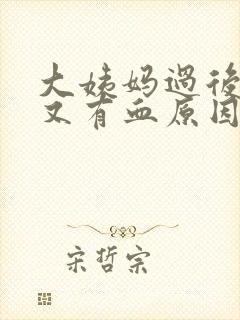 大姨妈过后
又有血原因
宋哲宗